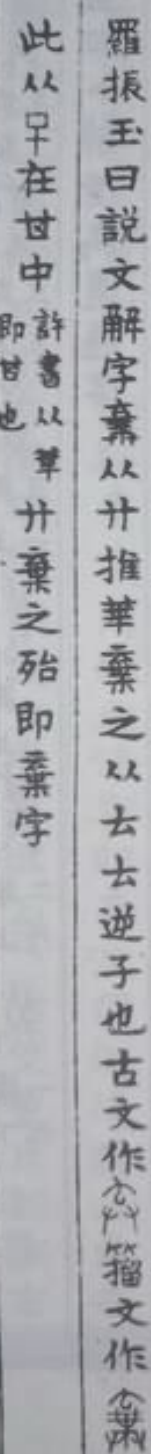 羅振玉曰説文解字棄从廾推𠦒棄之从𠫓𠫓逆子也古文作籀文作
此从子在甘中許書从𠦒即甘也廾棄之殆即棄字